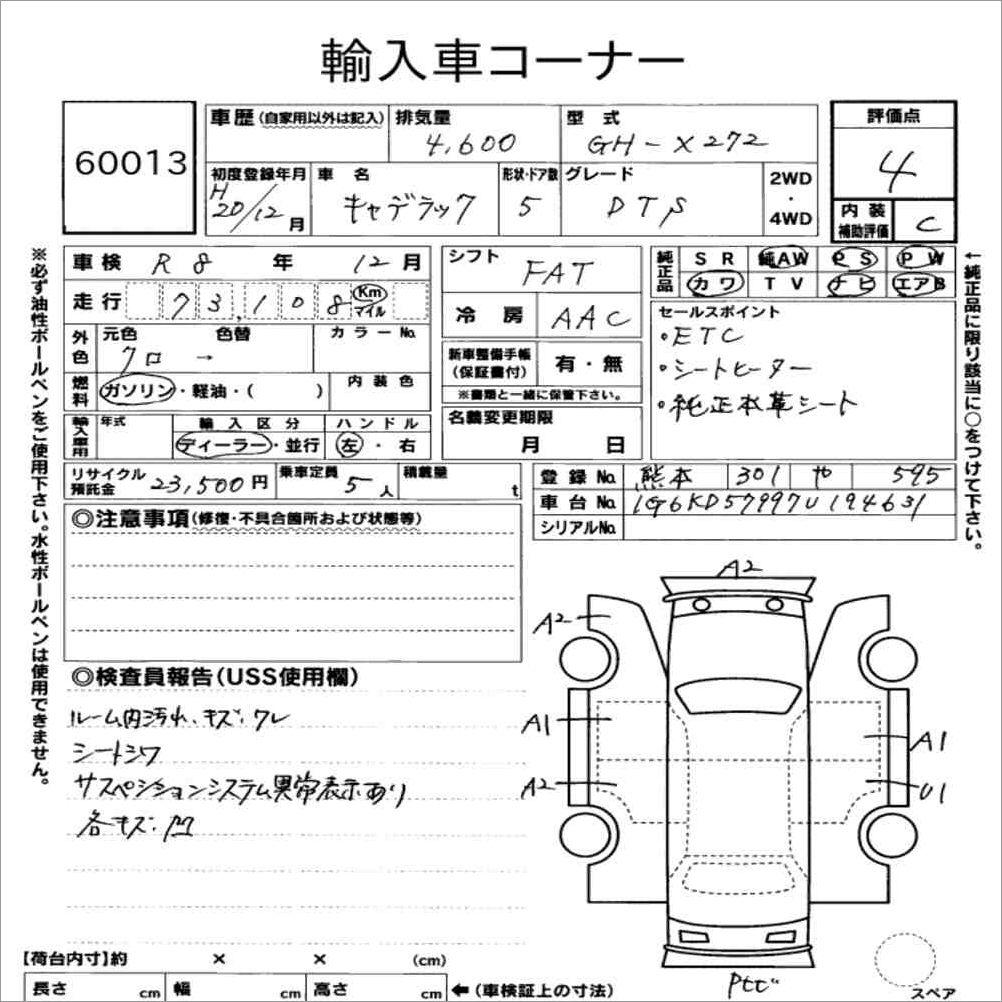 輸入車コーナー
60013
車歴(自家用以外は記入) 排気量 4,600 型式 GH-X272
評価点 4
初度登録年月 H20/12月 車名 キャデラック 形状・ドア数 5 グレード DTS 2WD・4WD
内装補助評価 C
車検 R8年12月 シフト FAT
純正品 SR 純AW PS PW
カワ TV ナビ エアB
走行 73,108 Km マイル
冷房 AAC
セールスポイント
・ETC
・シートヒーター
・純正本革シート
外色 元色 クロ → 色替 カラーNo.
新車整備手帳(保証書付) 有・無
※書類と一緒に保管下さい。
燃料 ガソリン・軽油・( ) 内装色
名義変更期限 月 日
輸入車用 年式 輸入区分 ディーラー・並行 ハンドル 左・右
リサイクル預託金 23,500円 乗車定員 5人 積載量 t
登録No. 熊本 301 や 595
車台No. 1G6KD57997U194631
シリアルNo.
◎注意事項(修復・不具合箇所および状態等)
◎検査員報告(USS使用欄)
ルーム内汚れ、キズ・ワレ
シートシワ
サスペンションシステム異常表示あり
各キズ・凹
A2
A2
A1
A1
A2
U1
【荷台内寸】約 × × (cm)
長さ cm 幅 cm 高さ cm ←(車検証上の寸法)
スペア
※必ず油性ボールペンをご使用下さい。水性ボールペンは使用できません。
←純正品に限り該当に○をつけて下さい。